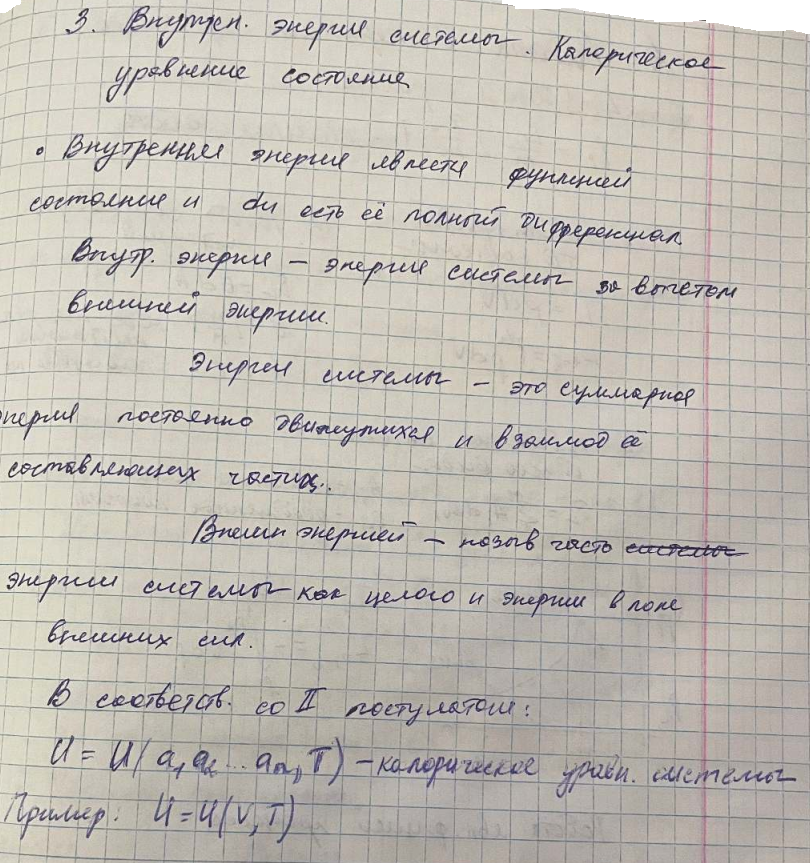 3. Внутрен. энергия системы. Калорическое
уравнение состояния
• Внутренняя энергия является функцией
состояния и du есть её полный дифференциал
Внутр. энергия – энергия системы за вычетом
внешней энергии.
Энергия системы – это суммарная
энергия постоянно движущихся и взаимод её
составляющих частиц.
Внешн энергией – назыв часть системы
энергии системы как целого и энергии в поле
внешних сил.
В соответств. со II постулатом:
U = U(a₁, a₂ ... aₙ, T) – калорическое уравн. системы
Пример: U = U(V, T)